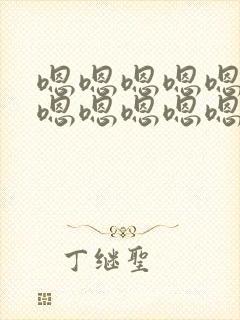 嗯嗯嗯嗯嗯
嗯嗯嗯嗯嗯
丁继聖